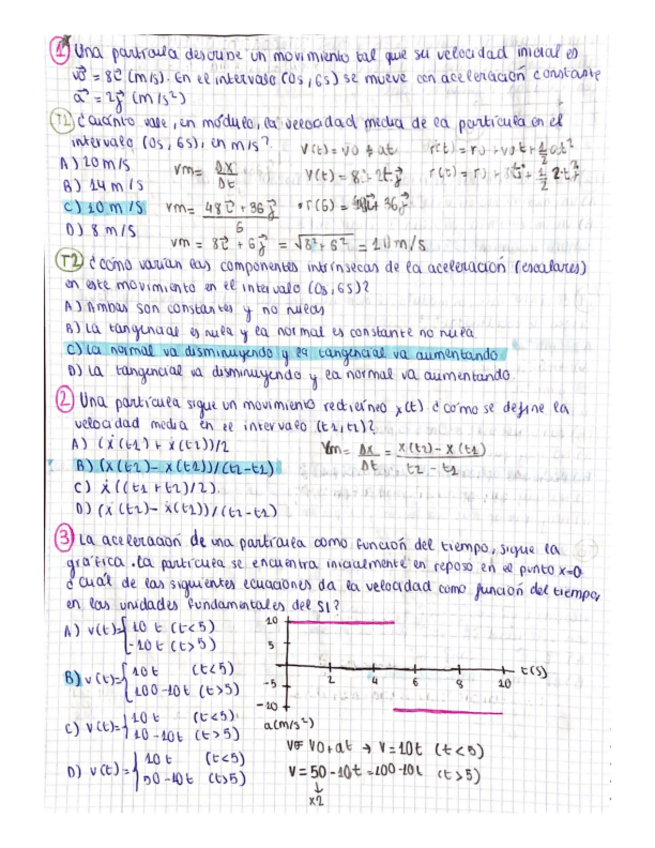 1 Una partícula describe un movimiento tal que su velocidad inicial es
v⃗0 = 8i⃗ (m/s). En el intervalo (0s, 6s) se mueve con aceleración constante
a⃗ = 2j⃗ (m/s²)
T1 ¿Cuánto vale, en módulo, la velocidad media de la partícula en el
intervalo (0s, 6s), en m/s? v(t) = v0 + at r(t) = r0 + v0t + 1/2 at²
A) 20 m/s vm = Δx/Δt v(t) = 8 2t j⃗
B) 14 m/s
C) 10 m/s vm = 48i⃗ + 36j⃗ / 6 r(6) = 48i⃗ 36j⃗
D) 8 m/s
vm = 8i⃗ + 6j⃗ = √8² + 6² = 10 m/s
T2 ¿Cómo varían las componentes intrínsecas de la aceleración (escalares)
en este movimiento en el intervalo (0s, 6s)?
A) Ambas son constantes y no nulas
B) La tangencial es nula y la normal es constante no nula
C) La normal va disminuyendo y la tangencial va aumentando
D) La tangencial va disminuyendo y la normal va aumentando.
2 Una partícula sigue un movimiento rectilíneo x(t). ¿cómo se define la
velocidad media en el intervalo (t1, t2)?
A) (ẋ(t2) + ẋ(t2))/2 Vm = Δx/Δt = x(t2) - x(t1) / t2 - t1
B) (x(t2) - x(t1))/(t2-t1)
C) ẋ((t1 + t2)/2)
D) (ẋ(t2) - ẋ(t1))/(t2-t1)
3 La aceleración de una partícula como función del tiempo, sigue la
gráfica. La partícula se encuentra inicialmente en reposo en el punto x=0
¿cuál de las siguientes ecuaciones da la velocidad como función del tiempo,
en las unidades fundamentales del SI?
A) v(t)={ 10 t (t<5)
-10 t (t>5)
B) v(t)={ 10t (t<5)
100-10t (t>5)
C) v(t)={ 10 t (t<5)
10-10t (t>5)
D) v(t)={ 10t (t<5)
50-10t (t>5)
10
5
-5
-10
2 4 6 8 10 t(s)
a(m/s²)
v= v0+at → v=10t (t<5)
v = 50-10t = 100-10t (t>5)
↓
x2